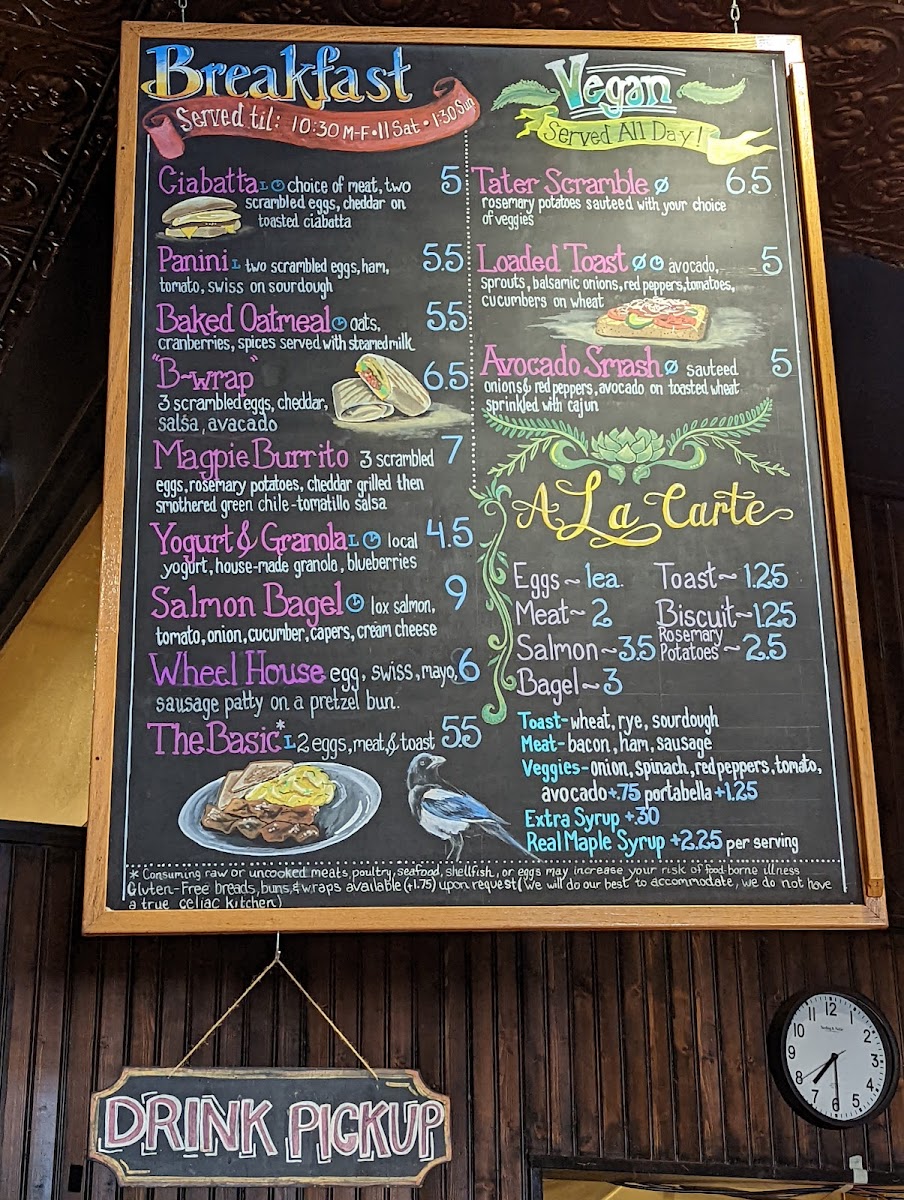 Breakfast
Served til: 10:30 M-F • 11 Sat • 1:30 Sun
Ciabatta L choice of meat, two 5
scrambled eggs, cheddar on
toasted ciabatta
Panini L two scrambled eggs, ham, 5.5
tomato, swiss on sourdough
Baked Oatmeal oats, 5.5
cranberries, spices served with steamed milk
"B-wrap" 6.5
3 scrambled eggs, cheddar,
salsa, avacado
Magpie Burrito 3 scrambled 7
eggs, rosemary potatoes, cheddar grilled then
smothered green chile-tomatillo salsa
Yogurt & Granola L local 4.5
yogurt, house-made granola, blueberries
Salmon Bagel lox salmon, 9
tomato, onion, cucumber, capers, cream cheese
Wheel House egg, swiss, mayo, 6
sausage patty on a pretzel bun.
The Basic* L 2 eggs, meat, & toast 5.5
Vegan
Served All Day!
Tater Scramble Ø 6.5
rosemary potatoes sauteed with your choice
of veggies
Loaded Toast Ø avocado, 5
sprouts, balsamic onions, red peppers, tomatoes,
cucumbers on wheat
Avocado Smash Ø sauteed 5
onions & red peppers, avocado on toasted wheat
sprinkled with cajun
A La Carte
Eggs ~ 1ea. Toast ~ 1.25
Meat ~ 2 Biscuit ~ 1.25
Salmon ~ 3.5 Rosemary Potatoes ~ 2.5
Bagel ~ 3
Toast - wheat, rye, sourdough
Meat - bacon, ham, sausage
Veggies - onion, spinach, red peppers, tomato,
avocado +.75 portabella +1.25
Extra Syrup +.30
Real Maple Syrup +2.25 per serving
* Consuming raw or uncooked meats, poultry, seafood, shellfish, or eggs may increase your risk of food-borne illness
Gluten-Free breads, buns, & wraps available (+1.75) upon request (we will do our best to accommodate, we do not have
a true celiac kitchen)
DRINK PICKUP
12
1
2
3
4
5
6
7
8
9
10
11